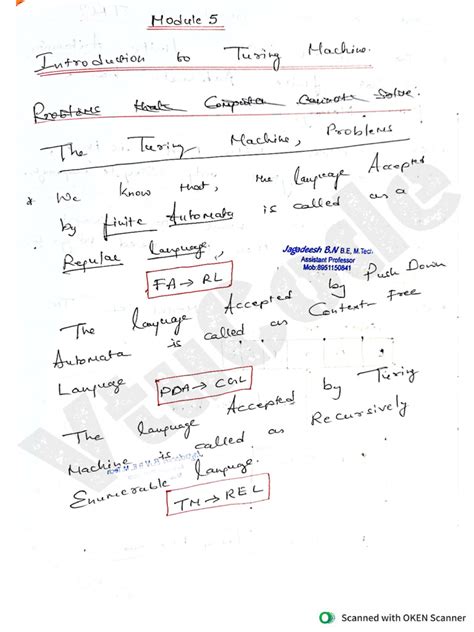 Module 5
Introduction to Turing Machine.
Problems that Computer Cannot Solve.
The Turing Machine, Problems
* We know that, the language Accepted
by finite Automata is called as a
Regular language,
Jagadeesh B.N B.E, M.Tec
Assistant Professor
Mob:8951150841
FA → RL
The language Accepted by Push Down
Automata is called as Context Free
Language
PDA → CGL
The language Accepted by Turing
Machine is called as Recursively
Enumerable language.
TM → REL
VtuCode
Scanned with OKEN Scanner